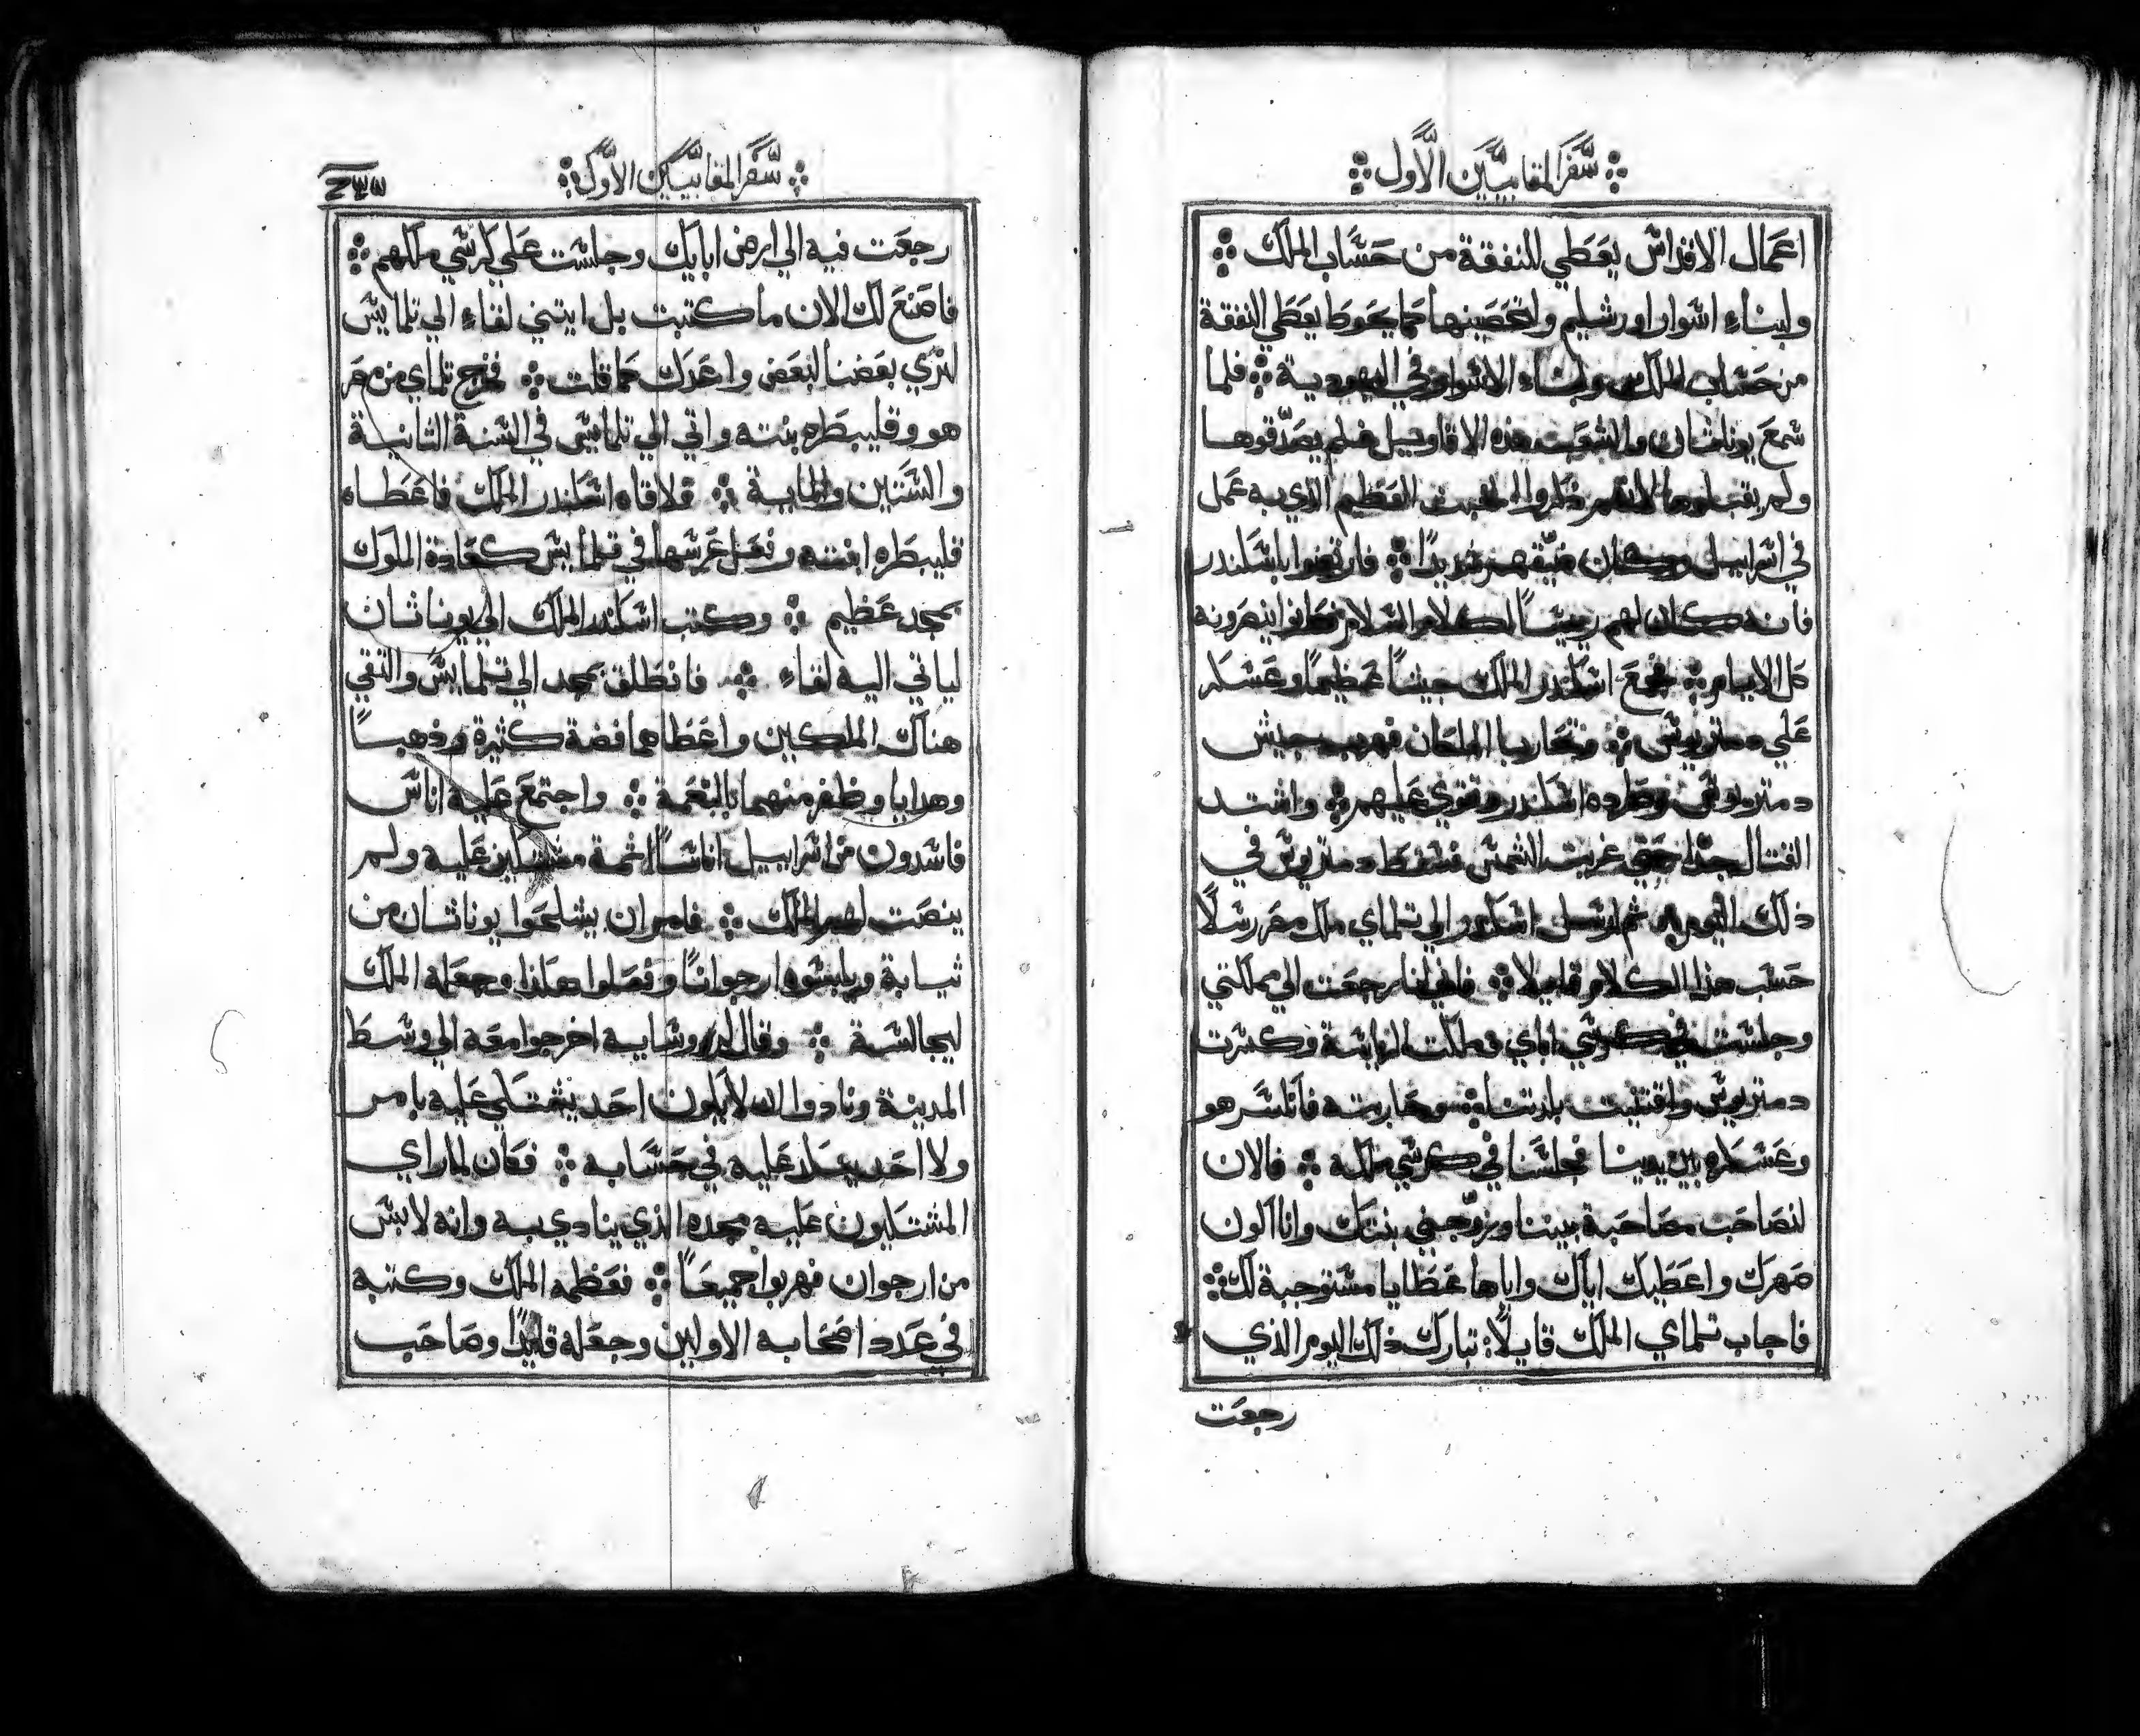 سفر المقابيين الاول
اعمال الاقداس يعطي للنفقة من حساب الملك
ولبناء اسوار اورشليم ولتحصينها كما يحوط يعطي النفقة
من حساب الملك ولبناء الاسوار في اليهودية فلما
سمع يوناثان والشعب هذه الاقاويل فلم يصدقوها
ولم يقبلوها لانهم ذكروا الخبث العظيم الذي به عمل
في اسراييل وكان ضيقهم شديدًا فارتضوا باسكندر
فانه كان لهم رييسًا لكلام السلام وكانوا ينصرونه
كل الايام فجمع اسكندر الملك جيشًا عظيمًا وعسكر
علي دمتريوس وتحاربا الملكان فهرب جيش
دمتريوس وطرده اسكندر وقوي عليهم واشتد
القتال جدًا حتي غربت الشمس فسقط دمتريوس في
ذلك اليوم ثم ارسل اسكندر الي تلماي ملك مصر رسلًا
حسب هذا الكلام قايلا فاني انا رجعت الي مملكتي
وجلست في كرسي اباي وملكت الرياسة وكسرت
دمتريوس واقتنيت بلدتنا وحاربته فانكسر هو
وعسكره بين يدينا فجلسنا في كرسي ملكه فالان
لنصاحب مصاحبة بيننا وزوجني بنتك وانا اكون
صهرك واعطيك اياك واياها عطايا مستوجبة لك
فاجاب تلماي الملك قايلًا تبارك ذلك اليوم الذي
رجعت
سفر المقابيين الاول
٢٣٧
رجعت فيه الي ارض ابايك وجلست علي كرسي ملكهم
فاصنع لك الان ما كتبت بل ايتني لقاء الي تلمايس
لنري بعضنا لبعض واعدك كما قلت فخرج تلماي من مصر
هو وقليبطره بنته واتي الي تلمايس في السنة الثانية
والستين والماية فلاقاه اسكندر الملك فاعطاه
قليبطره ابنته وفعل عرسها في تلمايس كعادة الملوك
بمجد عظيم وكتب اسكندر الملك الي يوناثان
لياتي اليه لقاء فانطلق بمجد الي تلمايس والتقي
هناك الملكين واعطاهما فضة كثيرة وذهبًا
وهدايا وظفر منهما بالنعمة واجتمع عليه اناس
فاسدون من اسراييل اناسًا اثمة مشتكين عليه ولم
ينصت لهم الملك فامر ان يشلحوا يوناثان من
ثيابة ويلبسوه ارجوانًا وفعلوا هكذا وجعله الملك
ليجالسة وقال لروسايه اخرجوا معه الي وسط
المدينة ونادوا انه لا يكون احد يشتكي عليه بامر
ولا احد يعكر عليه في حسابه فكان لما راي
المشتكيون عليه مجده الذي ينادي به وانه لابس
من ارجوان فهربوا جميعًا فعظمه الملك وكتبه
في عدد اصحابه الاولين وجعله قايدًا وصاحب